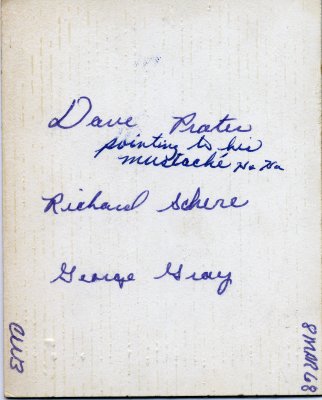 Dave Prater
pointing to his
mustache Ha Ha
Richard Schere
George Gray
8 MAR 68